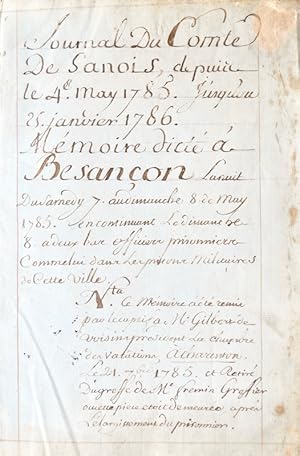 Journal Du Comte
De Sanois, depuis
le 4e. may 1785. Jusqu'au
25 janvier 1786.
Mémoire dicté à
Besançon la nuit
Du Samedy 7. au dimanche 8 de May
1785. en continuant Le dimanche
8. a deux bas officiers prisonniers
Comme lui dans Les prisons Militaires
de Cette Ville.
Nta. Ce Memoire a été remis
par à Mr. Gilbert de
Voisins président La chambre
des vacations, A Charenton.
Le 21. 7bre 1785. et Retiré
Du greffe de Mr. Fremin Greffier
ou cette piece étoit demeurée après
L'elargissement du prisonnier.